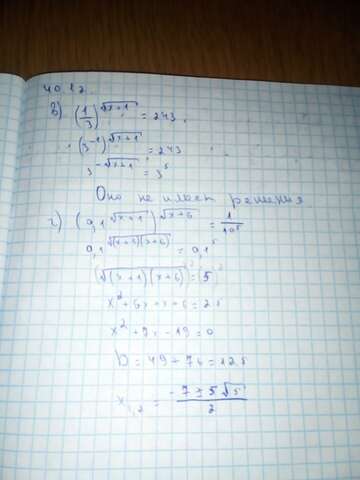 40.12.
в) (1/3)^√(x+1) = 243
(3^-1)^√(x+1) = 243
3^-√(x+1) = 3^5
Оно не имеет решения
г) (0,1^√(x+1))^√(x+6) = 1/10^5
0,1^√((x+1)(x+6)) = 0,1^5
(√(x+1)(x+6))^2 = (5)^2
x^2+6x+x+6=25
x^2+7x-19=0
D=49+76=125
x1,2 = (-7±5√5)/2